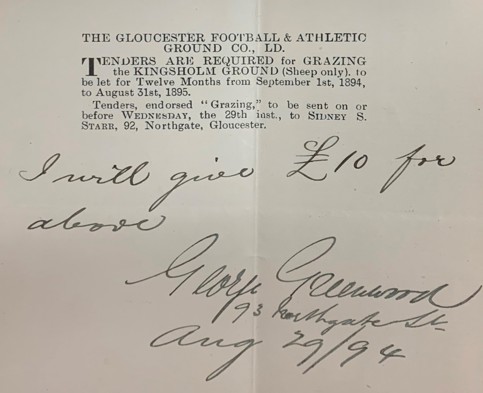 THE GLOUCESTER FOOTBALL & ATHLETIC
GROUND CO., LD.
TENDERS ARE REQUIRED for GRAZING
the KINGSHOLM GROUND (Sheep only), to
be let for Twelve Months from September 1st, 1894,
to August 31st, 1895.
Tenders, endorsed "Grazing," to be sent on or
before WEDNESDAY, the 29th inst., to SIDNEY S.
STARR, 92, Northgate, Gloucester.
I will give £10 for
above
George Greenwood
93 Northgate St
Aug 29/94